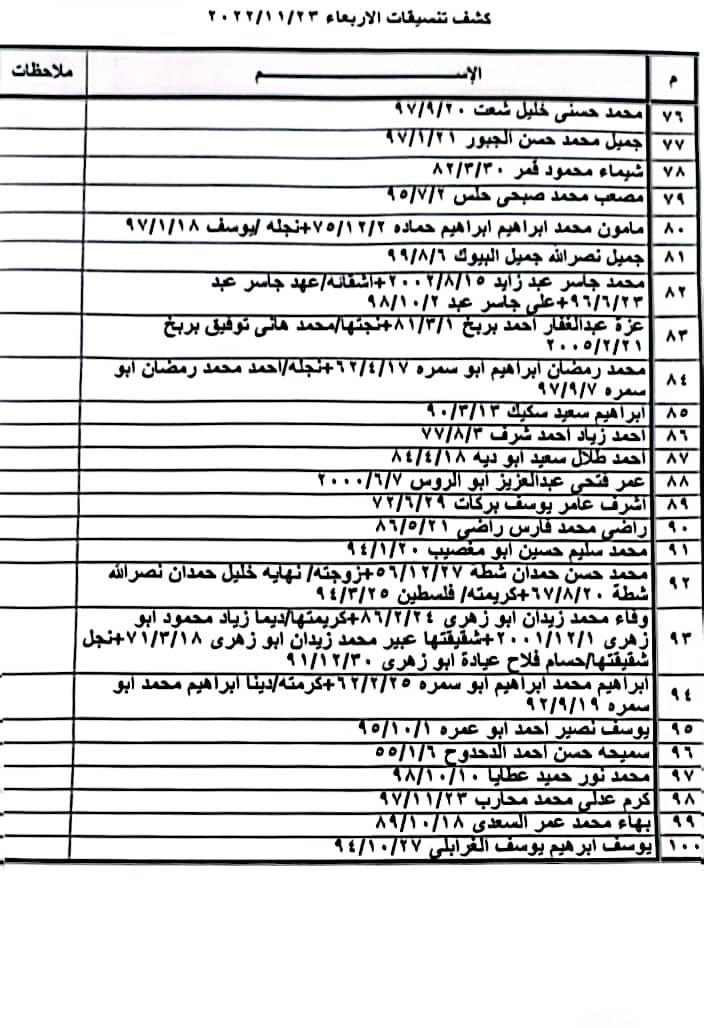 كشف تنسيقات الاربعاء ٢٠٢٢/١١/٢٣
م الإســـــــــم ملاحظات
٧٦ محمد حسنى خليل شعت ٩٧/٩/٢٠
٧٧ جميل محمد حسن الجبور ٩٧/١/٢١
٧٨ شيماء محمود قمر ٨٢/٣/٣٠
٧٩ مصعب محمد صبحى حلس ٩٥/٧/٢
٨٠ مامون محمد ابراهيم ابراهيم حماده ٧٥/١٢/٢+نجله /يوسف ٩٧/١/١٨
٨١ جميل نصرالله جميل البيوك ٩٩/٨/٦
٨٢ محمد جاسر عبد زايد ٢٠٠٢/٨/١٥+اشقائه/عهد جاسر عبد
٩٦/٦/٢٣+على جاسر عبد ٩٨/١٠/٢
٨٣ عزة عبدالغفار احمد بربخ ٨١/٣/١+نجتها/محمد هانى توفيق بربخ
٢٠٠٥/٢/٢١
٨٤ محمد رمضان ابراهيم ابو سمره ٦٢/٤/١٧+نجله/احمد محمد رمضان ابو
سمره ٩٧/٩/٧
٨٥ ابراهيم سعيد سكيك ٩٠/٣/١٣
٨٦ احمد زياد احمد شرف ٧٧/٨/٣
٨٧ احمد طلال سعيد ابو ديه ٨٤/٤/١٨
٨٨ عمر فتحى عبدالعزيز ابو الروس ٢٠٠٠/٦/٧
٨٩ اشرف عامر يوسف بركات ٧٢/٦/٢٩
٩٠ راضى محمد فارس راضى ٨٦/٥/٢١
٩١ محمد سليم حسين ابو مغصيب ٩٤/١/٢٠
٩٢ محمد حسن حمدان شطة ٥٦/١٢/٢٧+زوجته/ نهايه خليل حمدان نصرالله
شطة ٦٧/٨/٢٠+كريمته/ فلسطين ٩٤/٣/٢٥
٩٣ وفاء محمد زيدان ابو زهرى ٨٦/٢/٢٤+كريمتها/ديما زياد محمود ابو
زهرى ٢٠٠١/١٢/١+شقيقتها عبير محمد زيدان ابو زهرى ٧١/٣/١٨+نجل
شقيقتها/حسام فلاح عيادة ابو زهرى ٩١/١٢/٣٠
٩٤ ابراهيم محمد ابراهيم ابو سمره ٦٢/٢/٢٥+كرمته/دينا ابراهيم محمد ابو
سمره ٩٢/٩/١٩
٩٥ يوسف نصير احمد ابو عمره ٩٥/١٠/١
٩٦ سميحه حسن احمد الدحدوح ٥٥/١/٦
٩٧ محمد نور حميد عطايا ٩٨/١٠/١٠
٩٨ كرم عدلى محمد محارب ٩٧/١١/٢٣
٩٩ بهاء محمد عمر السعدى ٨٩/١٠/١٨
١٠٠ يوسف ابرهيم يوسف الغرابلى ٩٤/١٠/٢٧